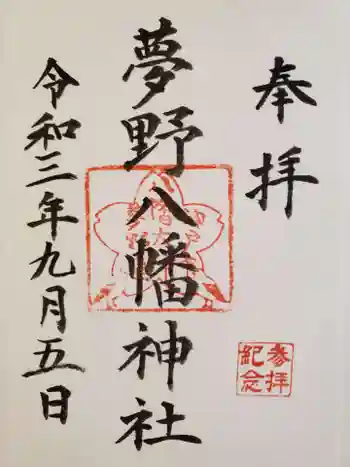 奉拝
夢野八幡神社
令和三年九月五日
参拝
紀念